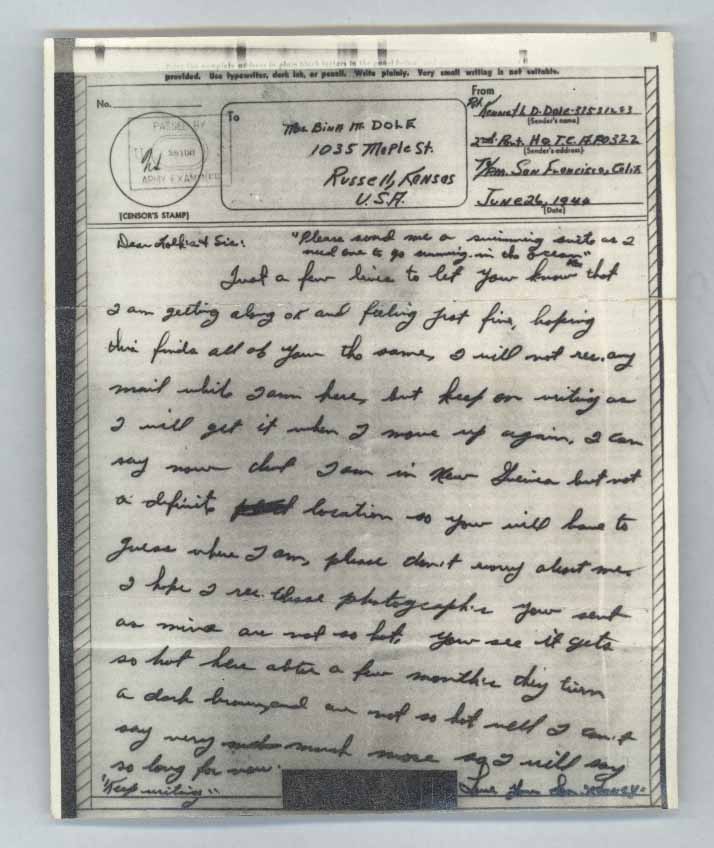 Print the complete address in plain block letters in the panel below, and
provided. Use typewriter, dark ink, or pencil. Write plainly. Very small writing is not suitable.
No.
PASSED BY
ARMY EXAMINER
[CENSOR'S STAMP]
To
Mrs Bina M. DOLE
1035 Maple St.
Russell, Kansas
U.S.A.
From
Pvt. Kenneth D. Dole-37531253
(Sender's name)
2nd Port. HQ T.C. APO 322
(Sender's address)
PM. San Francisco, Calif
June 26, 1944
(Date)
Dear Folks & Sis:
"Please send me a swimming suit as I
need one to go swimming in the ocean"
Just a few lines to let you know that
I am getting along ok and feeling just fine, hoping
this finds all of you the same, I will not rec. any
mail while I am here, but keep on writing as
I will get it when I move up again, I can
say now that I am in New Guinea but not
a definite location so you will have to
guess where I am, please don't worry about me.
I hope I rec. those photographs you sent
as mine are not so hot, you see it gets
so hot here after a few months they turn
a dark brown, and are not so hot well I can't
say very much more so I will say
so long for now.
"Keep writing"
Love Your Son Kenny